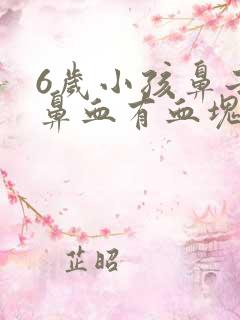 6歲小孩鼻
鼻血有血塊
芷昭